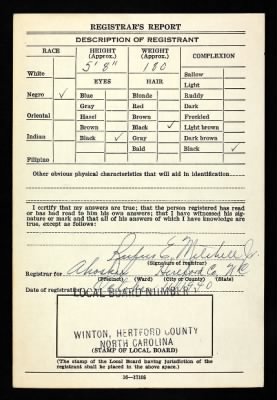 REGISTRAR'S REPORT
DESCRIPTION OF REGISTRANT
RACE HEIGHT (Approx.) WEIGHT (Approx.) COMPLEXION
5' 8" 180
White Sallow
EYES HAIR Light
Negro ✓ Blue Blonde Ruddy
Gray Red Dark
Oriental Hazel Brown Freckled
Brown Black ✓ Light brown
Indian Black ✓ Gray Dark brown
Bald Black ✓
Filipino
Other obvious physical characteristics that will aid in identification
I certify that my answers are true; that the person registered has read
or has had read to him his own answers; that I have witnessed his
signature or mark and that all of his answers of which I have knowledge
are true, except as follows:
Rufus E. Mitchell Jr.
(Signature of registrar)
Registrar for Ahoskie Hertford Co N.C.
(Precinct) (Ward) (City or County) (State)
Date of registration 1940
LOCAL BOARD NUMBER 1
WINTON, HERTFORD COUNTY
NORTH CAROLINA
(STAMP OF LOCAL BOARD)
(The stamp of the Local Board having jurisdiction of the
registrant shall be placed in the above space.)
16-17105